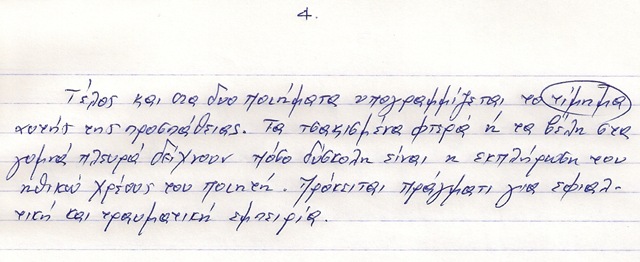 4.
Τέλος και στα δυο ποιήματα υπογραμμίζεται το τίμημα
αυτής της προσπάθειας. Τα τσακισμένα φτερά ή τα βέλη στα
γυμνά πλευρά δείχνουν πόσο δύσκολη είναι η εκπλήρωση του
ηθικού χρέους του ποιητή. Πρόκειται πράγματι για εφιαλ-
τική και τραυματική εμπειρία.